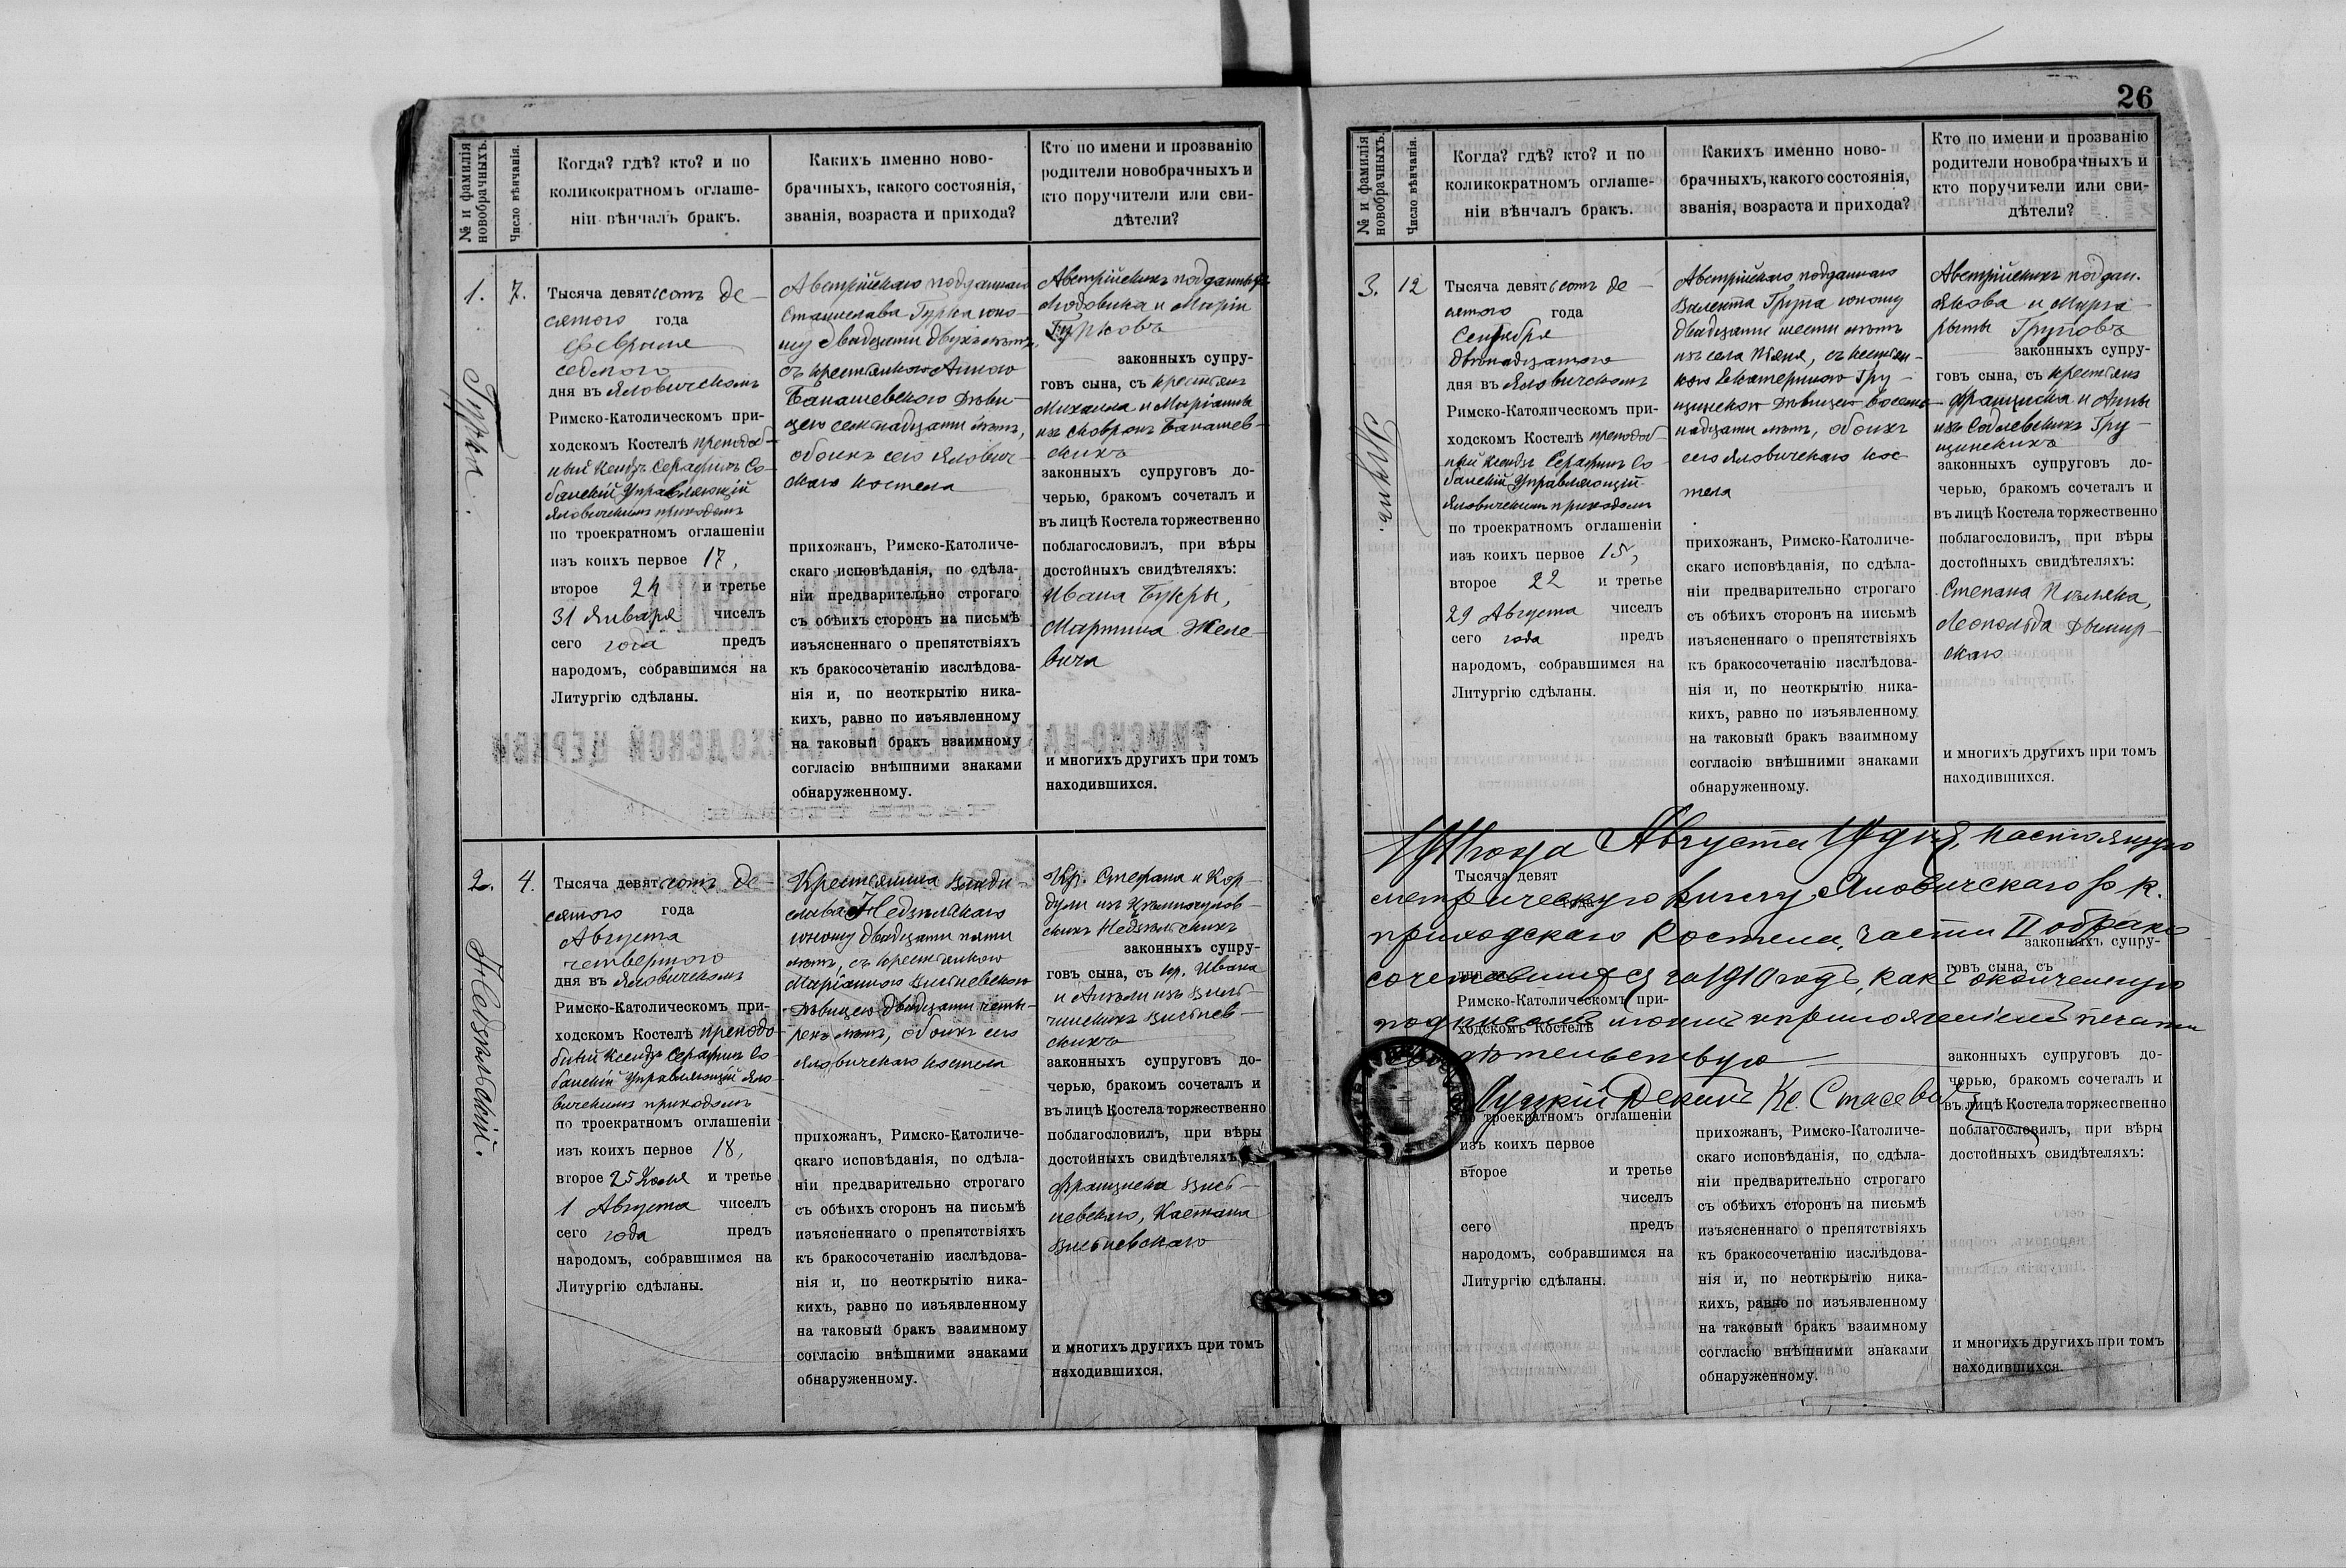 26
№ и фамилія новобрачныхъ.
Число вѣнчанія.
Когда? гдѣ? кто? и по
коликократномъ оглаше-
ніи вѣнчалъ бракъ.
Какихъ именно ново-
брачныхъ, какого состоянія,
званія, возраста и прихода?
Кто по имени и прозванію
родители новобрачныхъ и
кто поручители или сви-
дѣтели?
1. Гурка.
7.
Тысяча девятьсотъ де-
сятого года
Февраля
седмого
дня въ Яловичскомъ
Римско-Католическомъ при-
ходскомъ Костелѣ преподоб-
ный Ксендзъ Серафинъ Со-
банскій Управляющій
Яловичскимъ приходомъ
по троекратномъ оглашеніи
изъ коихъ первое 17,
второе 24 и третье
31 Января чиселъ
сего года предъ
народомъ, собравшимся на
Литургію сдѣланы.
Австрійскаго подданнаго
Станислава Гурка юно-
шу двадцати двухъ лѣтъ,
съ крестьянкою Анною
Банашевскою дѣви-
цею семнадцати лѣтъ,
обоихъ сего Ялович-
скаго костела
прихожанъ, Римско-Католиче-
скаго исповѣданія, по сдѣла-
ніи предварительно строгаго
съ обѣихъ сторонъ на письмѣ
изъясненнаго о препятствіяхъ
къ бракосочетанію изслѣдова-
нія и, по неоткрытію ника-
кихъ, равно по изъявленному
на таковый бракъ взаимному
согласію внѣшними знаками
обнаруженному.
Австрійскихъ подданныхъ
Людовика и Маріи
Гурковъ
законныхъ супру-
говъ сына, съ крестьян
Михаила и Маріанны
изъ Банашев-
скихъ
законныхъ супруговъ до-
черью, бракомъ сочеталъ и
въ лицѣ Костела торжественно
поблагословилъ, при вѣры
достойныхъ свидѣтеляхъ:
Ивана Букры,
Мартина Желе-
вича
и многихъ другихъ при томъ
находившихся.
2. Недзѣльскій.
4.
Тысяча девятьсотъ де-
сятого года
Августа
четвертого
дня въ Яловичскомъ
Римско-Католическомъ при-
ходскомъ Костелѣ преподо-
бный Ксендзъ Серафинъ Со-
банскій Управляющій Яло-
вичскимъ приходомъ
по троекратномъ оглашеніи
изъ коихъ первое 18,
второе 25 Іюля и третье
1 Августа чиселъ
сего года предъ
народомъ, собравшимся на
Литургію сдѣланы.
Крестьянина Влади-
слава Недзѣльскаго
юношу двадцати пяти
лѣтъ, съ крестьянкою
Маріанною Висневскою
дѣвицею двадцати четы-
рехъ лѣтъ, обоихъ сего
Яловичскаго костела
прихожанъ, Римско-Католиче-
скаго исповѣданія, по сдѣла-
ніи предварительно строгаго
съ обѣихъ сторонъ на письмѣ
изъясненнаго о препятствіяхъ
къ бракосочетанію изслѣдова-
нія и, по неоткрытію ника-
кихъ, равно по изъявленному
на таковый бракъ взаимному
согласію внѣшними знаками
обнаруженному.
Кр. Стефана и Кор-
дули изъ
Недзѣльскихъ
законныхъ супру-
говъ сына, съ кр. Ивана
и Анѣли изъ
Висьнев-
скихъ
законныхъ супруговъ до-
черью, бракомъ сочеталъ и
въ лицѣ Костела торжественно
поблагословилъ, при вѣры
достойныхъ свидѣтеляхъ:
Францишка Вись-
невскаго, Каетана
Висьневскаго
и многихъ другихъ при томъ
находившихся.
№ и фамилія новобрачныхъ.
Число вѣнчанія.
Когда? гдѣ? кто? и по
коликократномъ оглаше-
ніи вѣнчалъ бракъ.
Какихъ именно ново-
брачныхъ, какого состоянія,
званія, возраста и прихода?
Кто по имени и прозванію
родители новобрачныхъ и
кто поручители или сви-
дѣтели?
3.
12
Тысяча девятьсотъ де-
сятого года
Сентября
двѣнадцатого
дня въ Яловичскомъ
Римско-Католическомъ при-
ходскомъ Костелѣ преподоб-
ный Ксендзъ Серафинъ Со-
банскій Управляющій
Яловичскимъ приходомъ
по троекратномъ оглашеніи
изъ коихъ первое 15,
второе 22 и третье
29 Августа чиселъ
сего года предъ
народомъ, собравшимся на
Литургію сдѣланы.
Австрійскаго подданнаго
Валента Група юношу
двадцати шести лѣтъ
изъ села Пѣяня, съ крестьян-
кою Екатериною Гру-
щинскою дѣвицею восем-
надцати лѣтъ, обоихъ
сего Яловичскаго кос
тела
прихожанъ, Римско-Католиче-
скаго исповѣданія, по сдѣла-
ніи предварительно строгаго
съ обѣихъ сторонъ на письмѣ
изъясненнаго о препятствіяхъ
къ бракосочетанію изслѣдова-
нія и, по неоткрытію ника-
кихъ, равно по изъявленному
на таковый бракъ взаимному
согласію внѣшними знаками
обнаруженному.
Австрійскихъ поддан.
Якова и Марга-
рыты Груповъ
законныхъ супру-
говъ сына, съ крестьян
Францишка и Анны
изъ Соблевскихъ Гру-
щинскихъ
законныхъ супруговъ до-
черью, бракомъ сочеталъ и
въ лицѣ Костела торжественно
поблагословилъ, при вѣры
достойныхъ свидѣтеляхъ:
Степана
Леопольда Дымир-
скаго
и многихъ другихъ при томъ
находившихся.
1911 года Августа дня, настоящую
метрическую книгу Яловичскаго р. к.
приходскаго Костела, части II о брако
сочетавшихся за 1910 годъ, какъ оконченную
подписомъ моимъ и приложеніемъ печати
свидѣтельствую
Луцкій Деканъ Кс. Стасевичъ
Тысяча девят
года
законныхъ супру-
говъ сына, съ
дня въ
Римско-Католическомъ при-
ходскомъ Костелѣ
по троекратномъ оглашеніи
изъ коихъ первое
второе и третье
чиселъ
сего предъ
народомъ, собравшимся на
Литургію сдѣланы.
прихожанъ, Римско-Католиче-
скаго исповѣданія, по сдѣла-
ніи предварительно строгаго
съ обѣихъ сторонъ на письмѣ
изъясненнаго о препятствіяхъ
къ бракосочетанію изслѣдова-
нія и, по неоткрытію ника-
кихъ, равно по изъявленному
на таковый бракъ взаимному
согласію внѣшними знаками
обнаруженному.
законныхъ супруговъ до-
черью, бракомъ сочеталъ и
въ лицѣ Костела торжественно
поблагословилъ, при вѣры
достойныхъ свидѣтеляхъ:
и многихъ другихъ при томъ
находившихся.